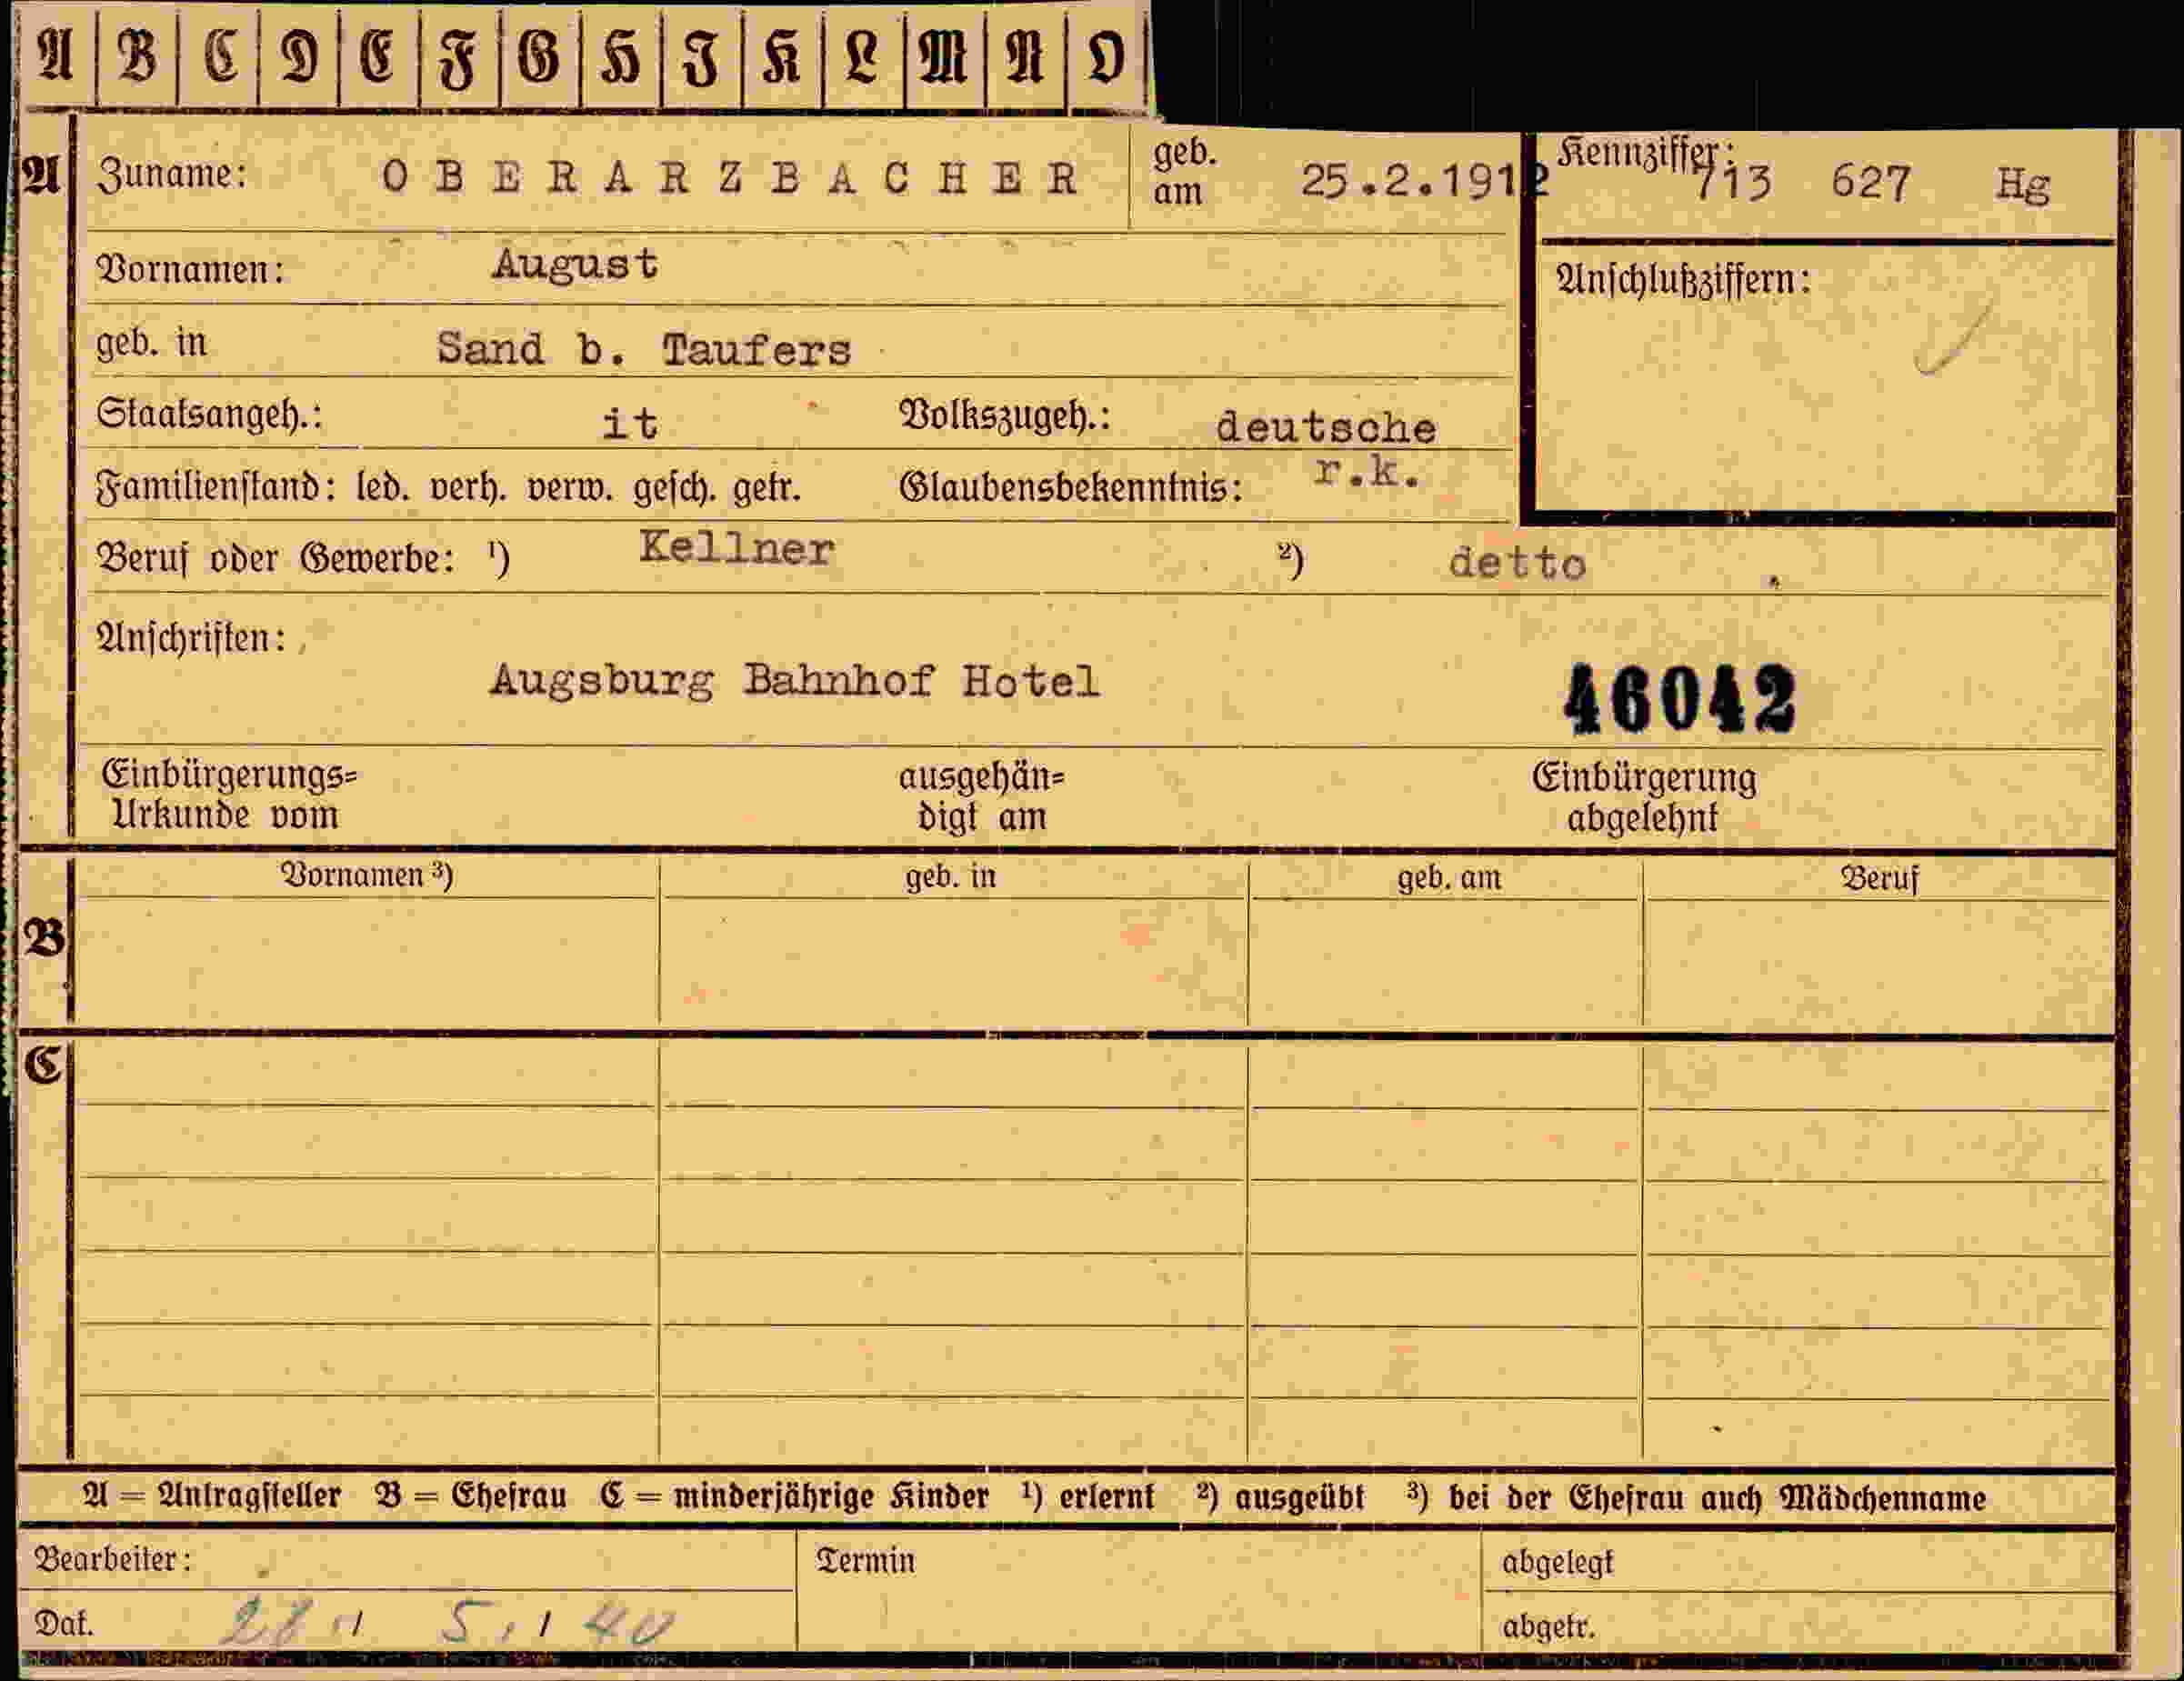 A B C D E F G H I K L M N O
A Zuname: OBERARZBACHER geb. am 25.2.1912 Kennziffer: 713 627 Hg
Vornamen: August Anschlußziffern:
geb. in Sand b. Taufers
Staatsangeh.: it Volkszugeh.: deutsche
Familienstand: led. verh. verw. gesch. getr. Glaubensbekenntnis: r.k.
Beruf oder Gewerbe: ¹) Kellner ²) detto
Anschriften:
Augsburg Bahnhof Hotel 46042
Einbürgerungs= ausgehän= Einbürgerung
Urkunde vom digt am abgelehnt
Vornamen ³) geb. in geb. am Beruf
B
C
A = Antragsteller B = Ehefrau C = minderjährige Kinder ¹) erlernt ²) ausgeübt ³) bei der Ehefrau auch Mädchenname
Bearbeiter: Termin abgelegt
Dat. 28. 5. 40 abgetr.